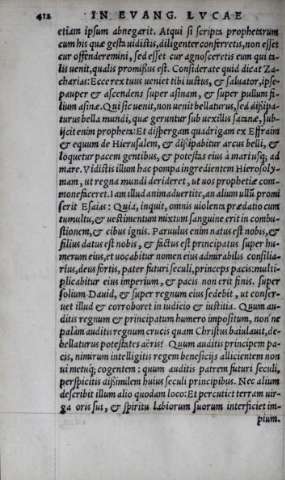 412 IN EVANG. LVCAE
etiam ipsum abnegarit. Atqui si scripta prophetarum
cum his quæ gesta uidistis, diligenter conferretis, non esset
cur offenderemini, sed esset cur agnosceretis eum qui ta-
lis uenit, qualis promissus est. Considerate quid dicat Za-
charias: Ecce rex tuus ueniet tibi iustus, & saluator, ipse
pauper & ascendens super asinam, & super pullum fi-
lium asinæ. Qui sic uenit, non uenit bellaturus, sed dissipa-
turus bella mundi, quæ geruntur sub uexillis satanæ, sub-
ijcit enim propheta: Et dispergam quadrigam ex Effraim
& equum de Hierusalem, & dissipabitur arcus belli, &
loquetur pacem gentibus, & potestas eius à mari usq; ad
mare. Vidistis illum hac pompa ingredientem Hierosoly-
mam, ut regna mundi derideret, ut uos prophetiæ com-
monefaceret. Iam illud animaduertite, an alium ullũ promi
serit Esaias: Quia, inquit, omnis uiolenta prædatio cum
tumultu, & uestimentum mixtum sanguine erit in combu-
stionem, & cibus ignis. Paruulus enim natus est nobis, &
filius datus est nobis, & factus est principatus super hu-
merum eius, et uocabitur nomen eius admirabilis consilia-
rius, deus fortis, pater futuri seculi, princeps pacis: multi-
plicabitur eius imperium, & pacis non erit finis. super
solium Dauid, & super regnum eius sedebit, ut confer-
uet illud & corroboret in iudicio & iustitia. Quum au-
ditis regnum & principatum humero impositum, non'ne
palàm auditis regnum crucis quam Christus baiulauit, de-
bellaturus potestates aëris? Quum auditis principem pa-
cis, nimirum intelligitis regem beneficijs allicientem non
ui metuq; cogentem: quum auditis patrem futuri seculi,
perspicitis dissimilem huius seculi principibus. Nec alium
describit illum alio quodam loco: Et percutiet terram uir-
ga oris sui, & spiritu labiorum suorum interficiet im-
pium.